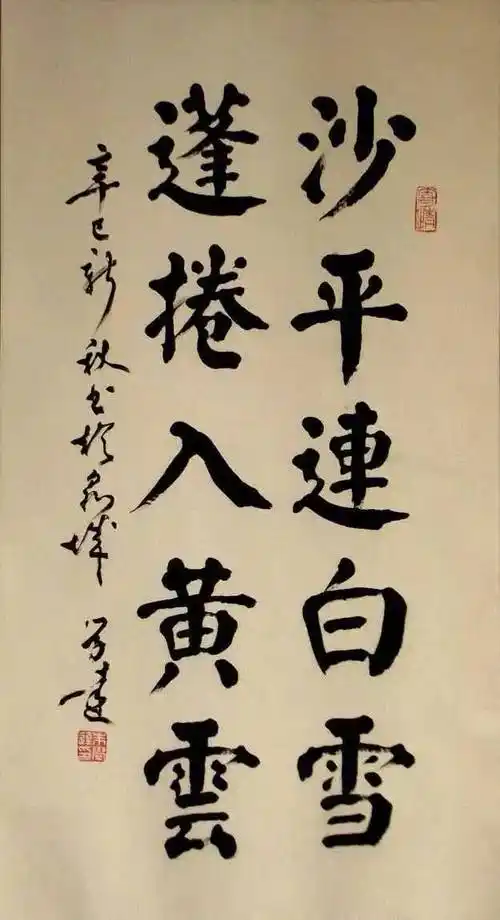 沙平連白雪
蓬捲入黄雲
辛巳新秋书於泉城